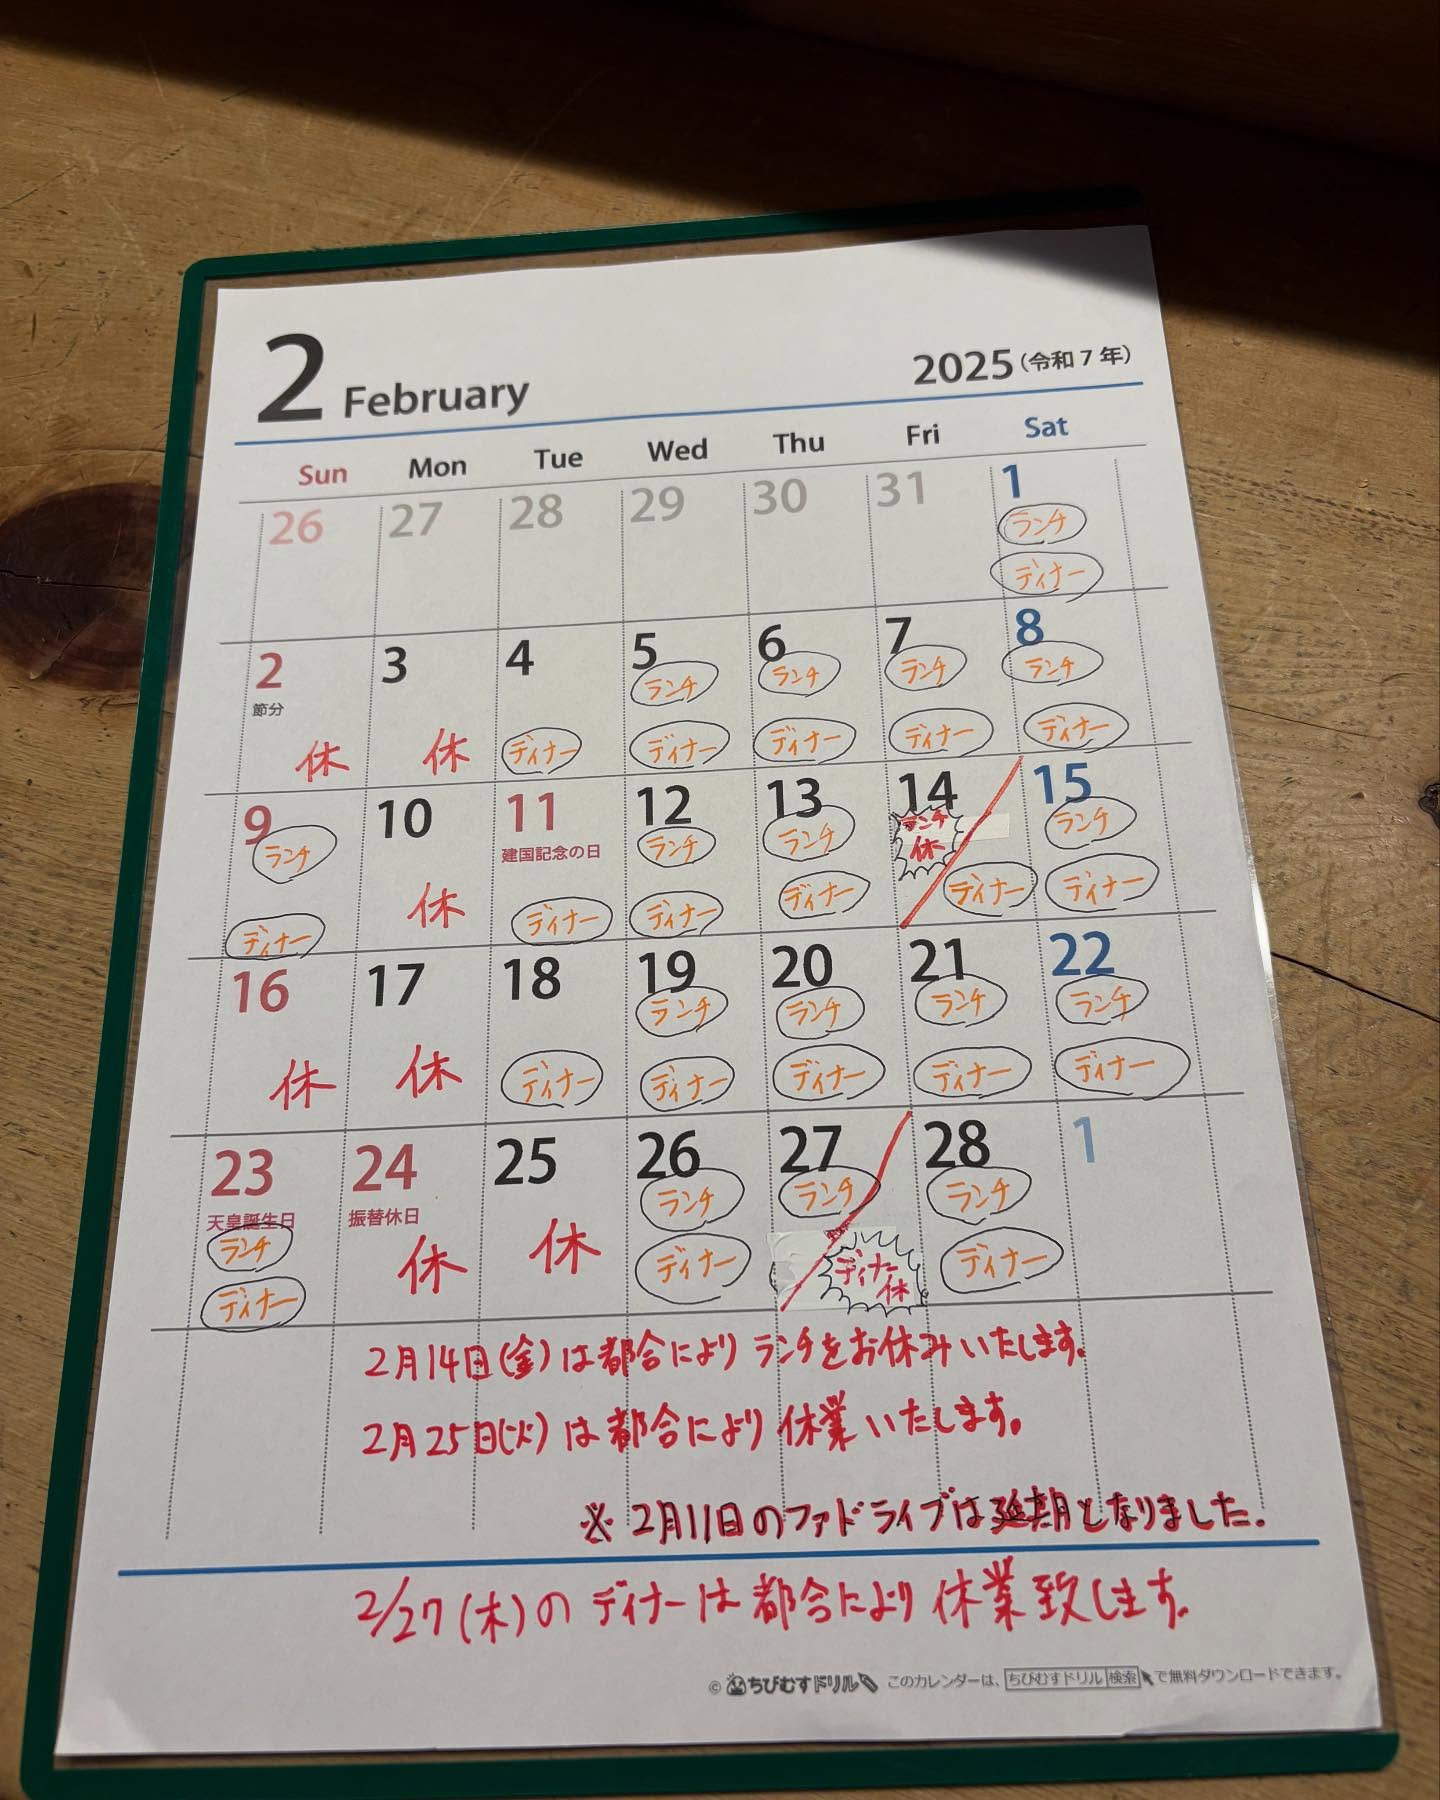 2 February 2025(令和7年)
Sun Mon Tue Wed Thu Fri Sat
26 27 28 29 30 31 1
ランチ
ディナー
2 3 4 5 6 7 8
節分
ランチ ランチ ランチ ランチ
休 休 ディナー ディナー ディナー ディナー ディナー
9 10 11 12 13 14 15
建国記念の日
ランチ ランチ ランチ ランチ休 ランチ
ディナー 休 ディナー ディナー ディナー ディナー ディナー
16 17 18 19 20 21 22
ランチ ランチ ランチ ランチ
休 休 ディナー ディナー ディナー ディナー ディナー
23 24 25 26 27 28 1
天皇誕生日 振替休日
ランチ ランチ ランチ ランチ
ディナー 休 休 ディナー ディナー休 ディナー
2月14日(金)は都合によりランチをお休みいたします。
2月25日(火)は都合により休業いたします。
※2月11日のファドライブは延期となりました。
2/27(木)のディナーは都合により休業致します。
© ちびむすドリル このカレンダーは、ちびむすドリル 検索 で無料ダウンロードできます。